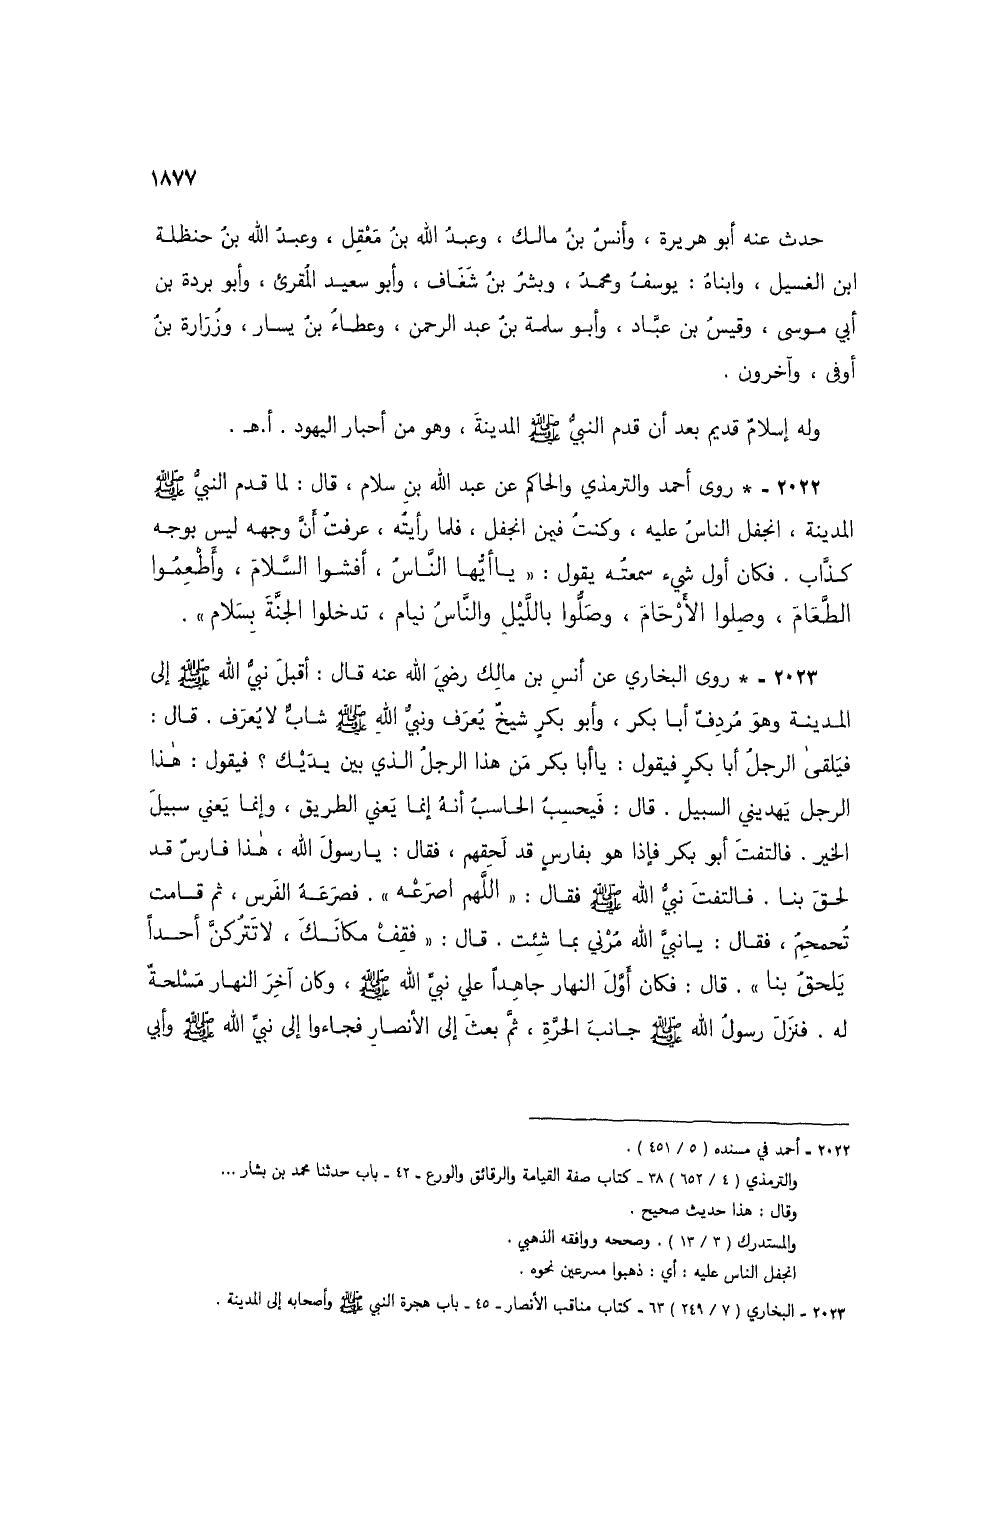 ١٨٧٧
حدث عنه أبو هريرة ، وأنسُ بنُ مالك ، وعبدُ الله بنُ مَعْقِل ، وعبدُ الله بنُ حنظلة
ابن الغسيل ، وابناهُ : يوسفُ ومحمدُ ، وبشرُ بنُ شَغَاف ، وأبو سعيد المُقرئ ، وأبو بردة بن
أبي موسى ، وقيسُ بن عبَّاد ، وأبو سلمة بنُ عبد الرحمن ، وعطاءُ بنُ يسار ، وزُرَارة بنُ
أوفى ، وآخرون .
وله إسلامٌ قديم بعد أن قدم النبيُّ ﷺ المدينةَ ، وهو من أحبار اليهود . أ.هـ .
٢٠٢٢ - * روى أحمد والترمذي والحاكم عن عبد الله بنِ سلام ، قال : لما قدم النبيُّ ﷺ
المدينة ، انجفل الناسُ عليه ، وكنتُ فيمن انجفل ، فلما رأيتُه ، عرفتُ أنَّ وجهه ليس بوجه
كذَّاب . فكان أول شيء سمعتُه يقول : « ياأيُّها النَّاسُ ، أفشوا السَّلامَ ، وأَطْعِمُوا
الطَّعَامَ ، وصِلوا الأَرْحَامَ ، وصَلُّوا باللَّيْلِ والنَّاسُ نيام ، تدخلوا الجنَّةَ بِسَلام » .
٢٠٢٣ - * روى البخاري عن أنسِ بن مالِك رضيَ الله عنه قال : أقبلَ نبيُّ الله ﷺ إلى
المدينة وهوَ مُردِفٌ أبا بكر ، وأبو بكرٍ شيخٌ يُعرَف ونبيُّ اللهِ ﷺ شابٌّ لايُعرَف . قال :
فيَلقىٰ الرجلُ أبا بكرٍ فيقول : ياأبا بكر مَن هذا الرجلُ الذي بين يدَيْك ؟ فيقول : هٰذا
الرجل يَهديني السبيل . قال : فَيحسِبُ الحاسبُ أنهُ إنما يَعني الطريق ، وإنما يَعني سبيلَ
الخير . فالتفتَ أبو بكر فإذا هو بفارسٍ قد لَحِقهم ، فقال : يارسولَ الله ، هٰذا فارسٌ قد
لحقَ بنا . فالتفتَ نبيُّ الله ﷺ فقال : « اللَّهم اصرَعْه » . فصرَعَهُ الفَرس ، ثم قامت
تُحمحِمُ ، فقال : يانبيَّ الله مُرْني بما شِئت . قال : « فقِفْ مكانَكَ ، لاتَتْرُكنَّ أحداً
يَلحقُ بنا » . قال : فكان أوَّلَ النهار جاهِداً علي نبيِّ الله ﷺ ، وكان آخِرَ النهار مَسْلحةً
له . فنزَلَ رسولُ الله ﷺ جانبَ الحرَّةِ ، ثمَّ بعثَ إلى الأنصارِ فجاءوا إلى نبيِّ الله ﷺ وأبي
٢٠٢٢ - أحمد في مسنده ( ٥ / ٤٥١ ) .
والترمذي ( ٤ / ٦٥٢ ) ٣٨ - كتاب صفة القيامة والرقائق والورع - ٤٢ - باب حدثنا محمد بن بشار ...
وقال : هذا حديث صحيح .
والمستدرك ( ٣ / ١٣ ) . وصححه ووافقه الذهبي .
انجفل الناس عليه : أي : ذهبوا مسرعين نحوه .
٢٠٢٣ - البخاري ( ٧ / ٢٤٩ ) ٦٣ - كتاب مناقب الأنصار - ٤٥ - باب هجرة النبي ﷺ وأصحابه إلى المدينة .